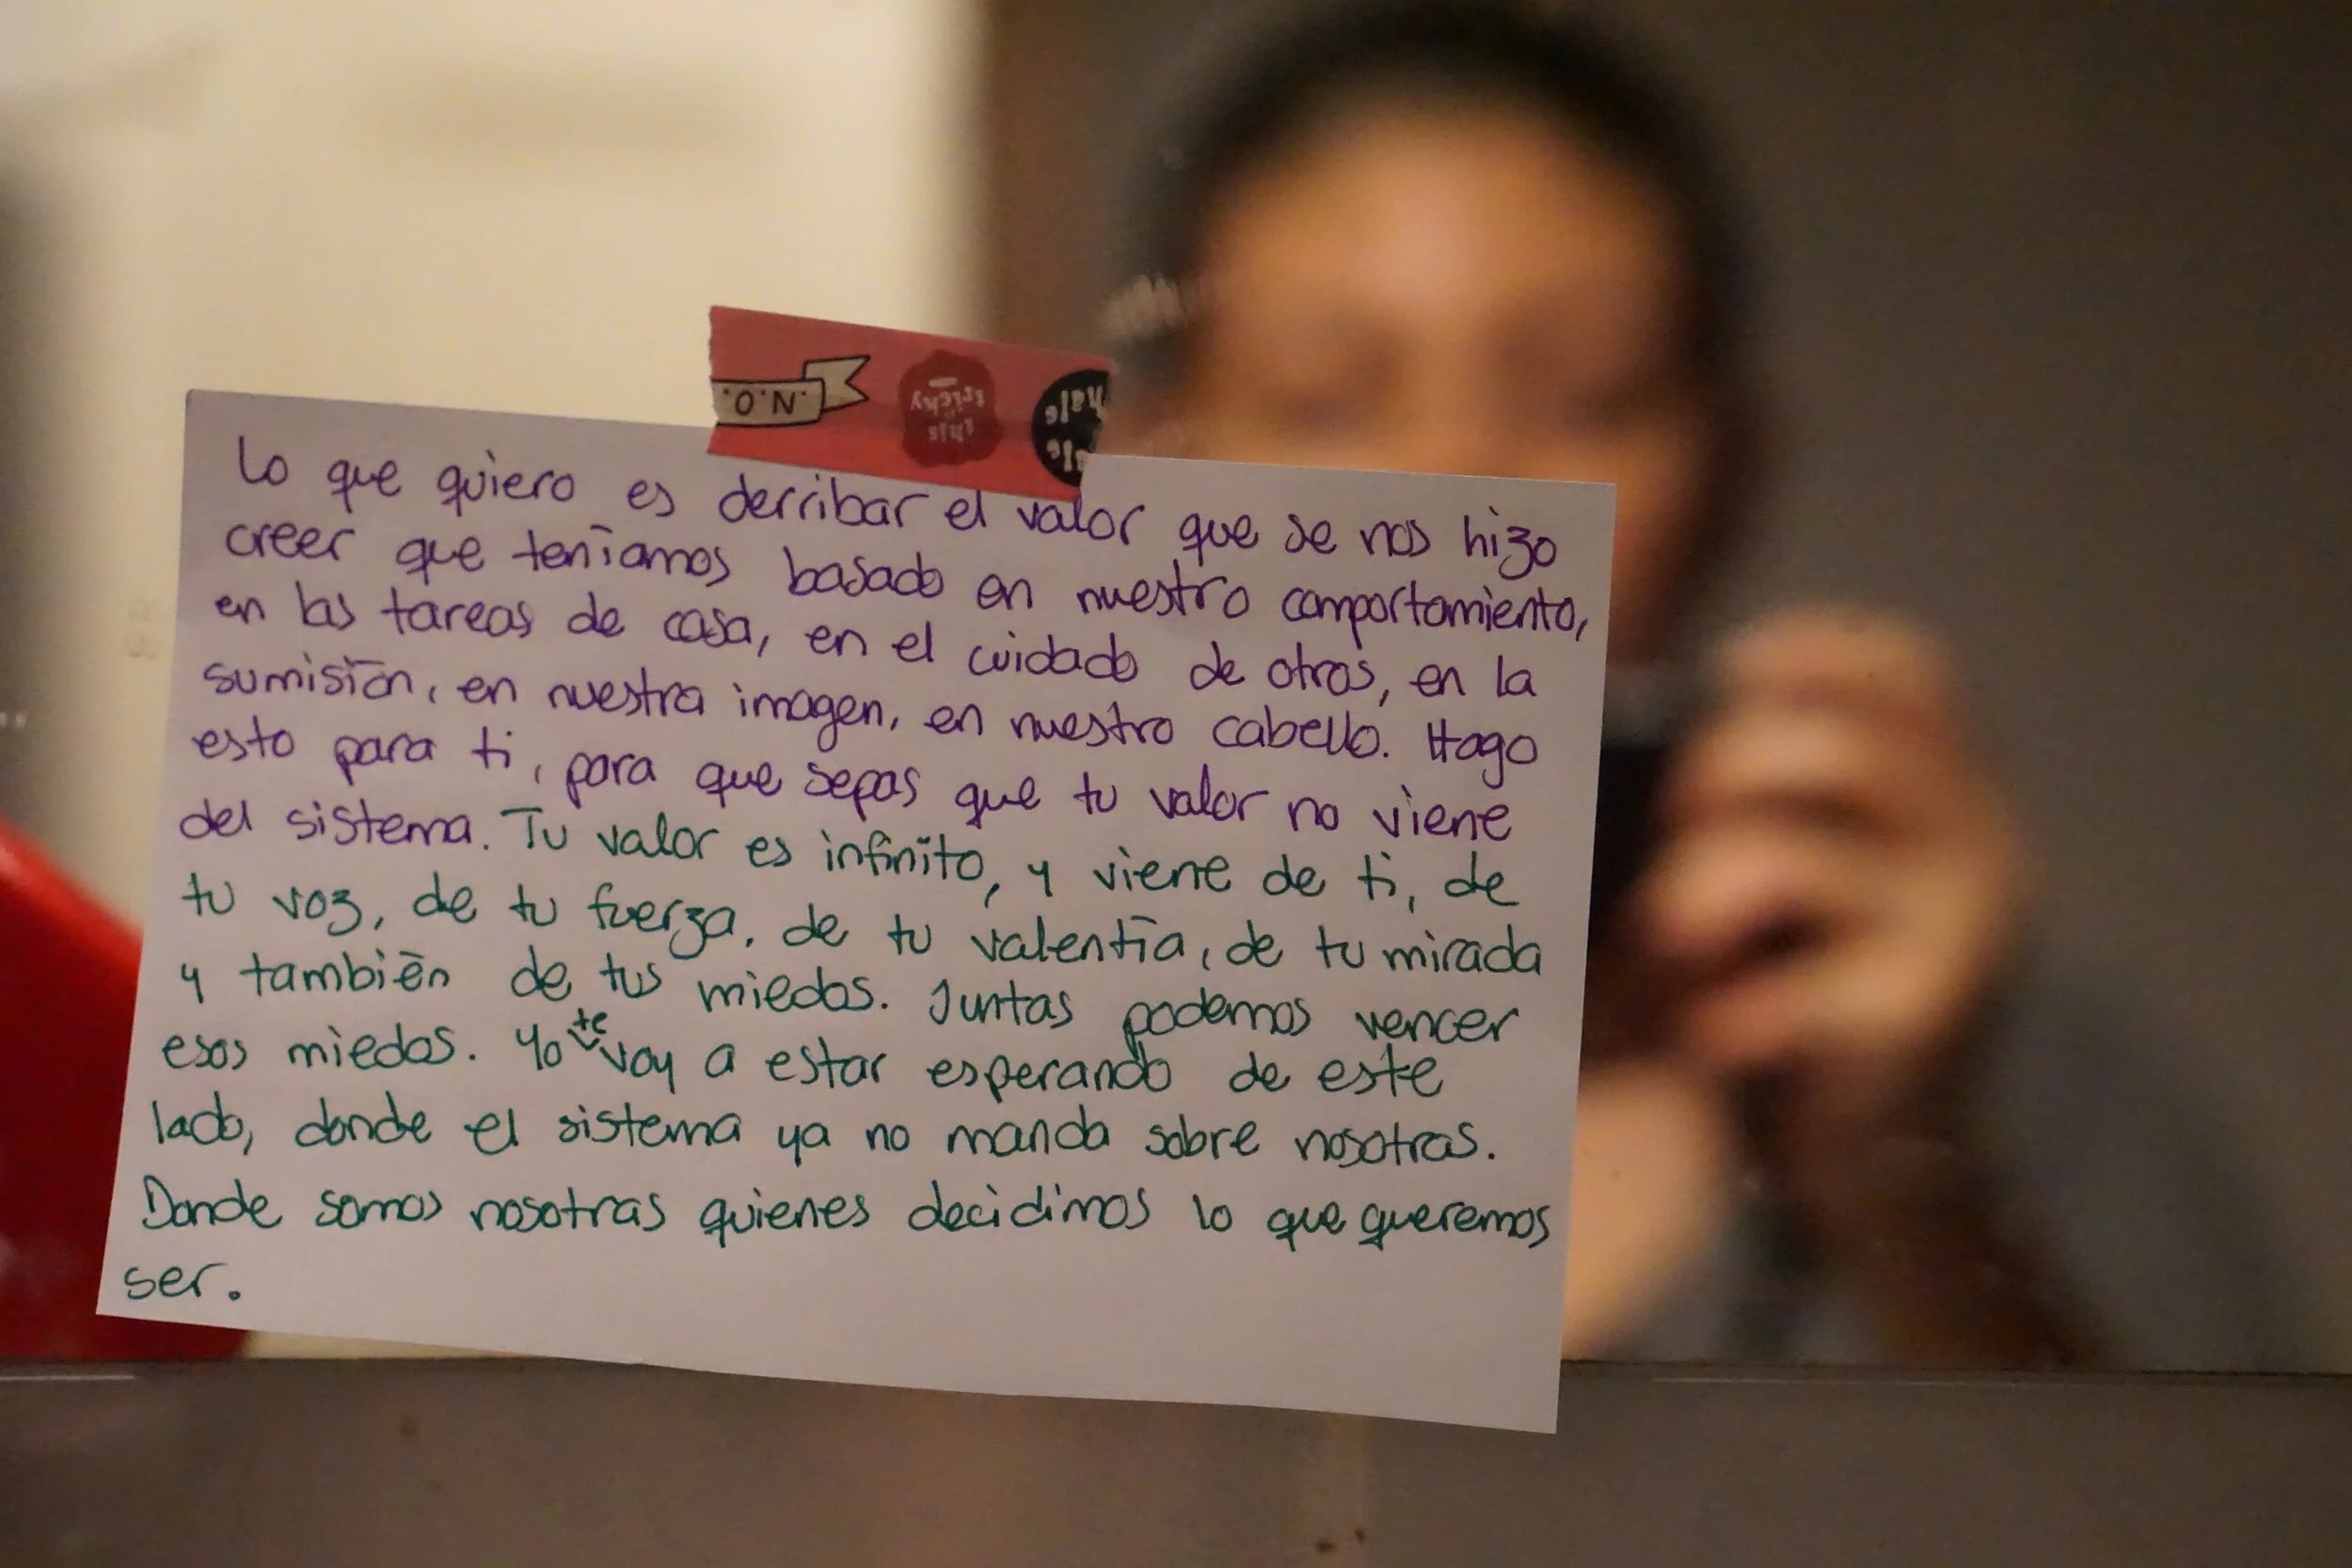 .O.N.
this
is
tricky
hale
Lo que quiero es derribar el valor que se nos hizo
creer que teníamos basado en nuestro comportamiento,
en las tareas de casa, en el cuidado de otros, en la
sumisión, en nuestra imagen, en nuestro cabello. Hago
esto para ti, para que sepas que tu valor no viene
del sistema. Tu valor es infinito, y viene de ti, de
tu voz, de tu fuerza, de tu valentía, de tu mirada
y también de tus miedos. Juntas podemos vencer
esos miedos. Yo te voy a estar esperando de este
lado, donde el sistema ya no manda sobre nosotras.
Donde somos nosotras quienes decidimos lo que queremos
ser.